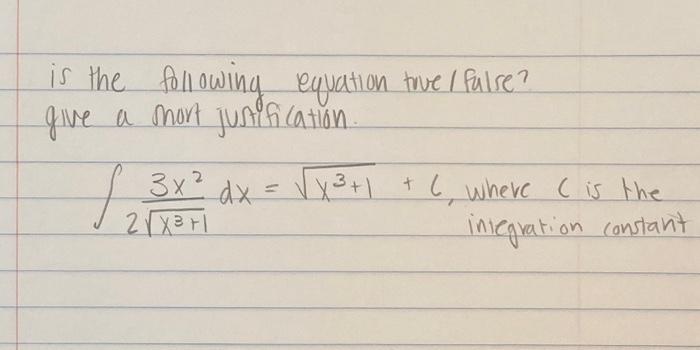 is the following equation true / false?
give a short justification.
∫ 3x² / 2√(x³+1) dx = √(x³+1) + C, where C is the
integration constant